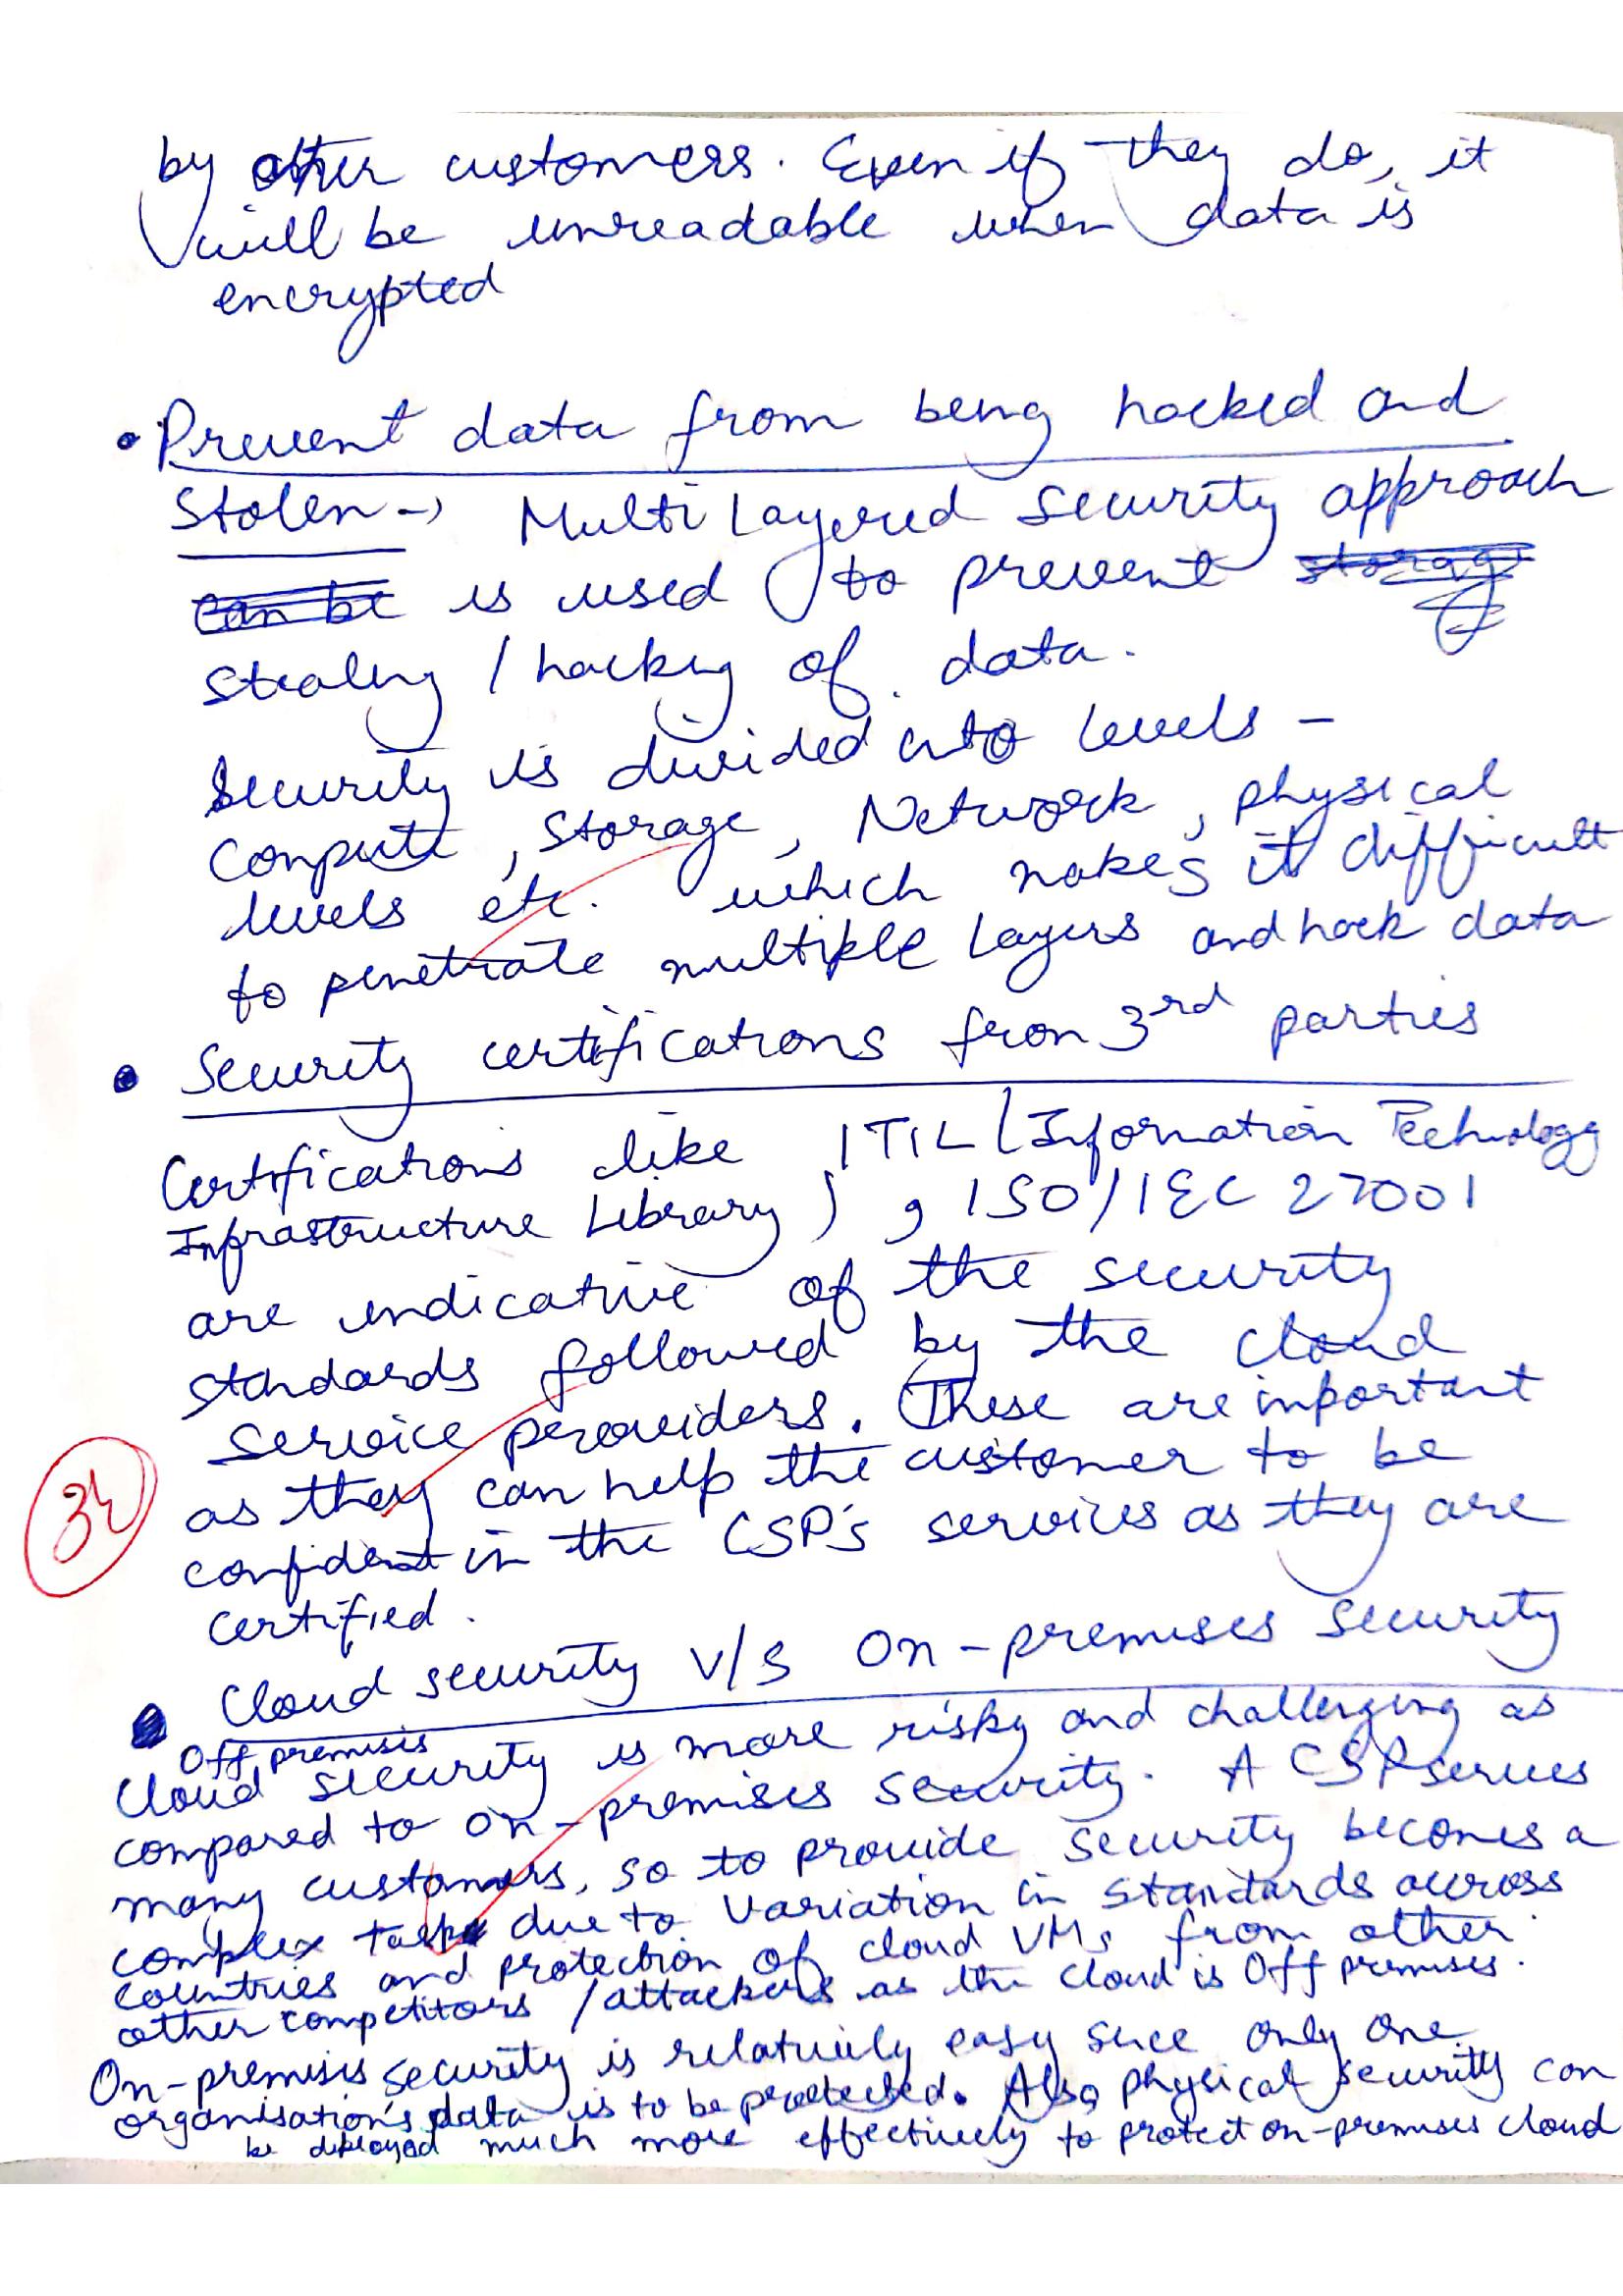 by other customers. Even if they do, it
will be unreadable when data is
encrypted
• Prevent data from being hacked and
Stolen → Multi Layered Security approach
can be is used to prevent storage
stealing / hacking of data.
Security is divided into levels -
Compute, Storage, Network, physical
levels etc. which makes it difficult
to penetrate multiple layers and hack data
• Security certifications from 3rd parties
Certifications like ITIL (Information Technology
Infrastructure Library), ISO/IEC 27001
are indicative of the security
standards followed by the cloud
service peroviders. These are important
as they can help the customer to be
confident in the CSP's services as they are
certified.
• Cloud security v/s On-premises Security
Off premisis
Cloud security is more risky and challenging as
compared to on-premises security. A CSP serves
many customers, so to provide security becomes a
complex task due to variation in standards accross
countries and protection of cloud VMs from other
other competitors / attackers as the cloud is Off premises.
On-premisis security is relatively easy since only one
organisation's data is to be protected. Also physical security can
be deployed much more effectively to protect on-premises cloud
34